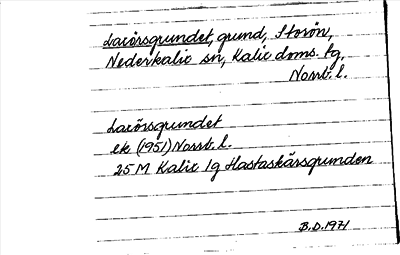 Laxörsgrundet, grund, Storön,
Nederkalix sn, Kalix doms. lg,
Norrb. l.
Laxörsgrundet
ek (1951) Norrb. l.
25 M Kalix lg Hastaskärsgrunden
B.D. 1971